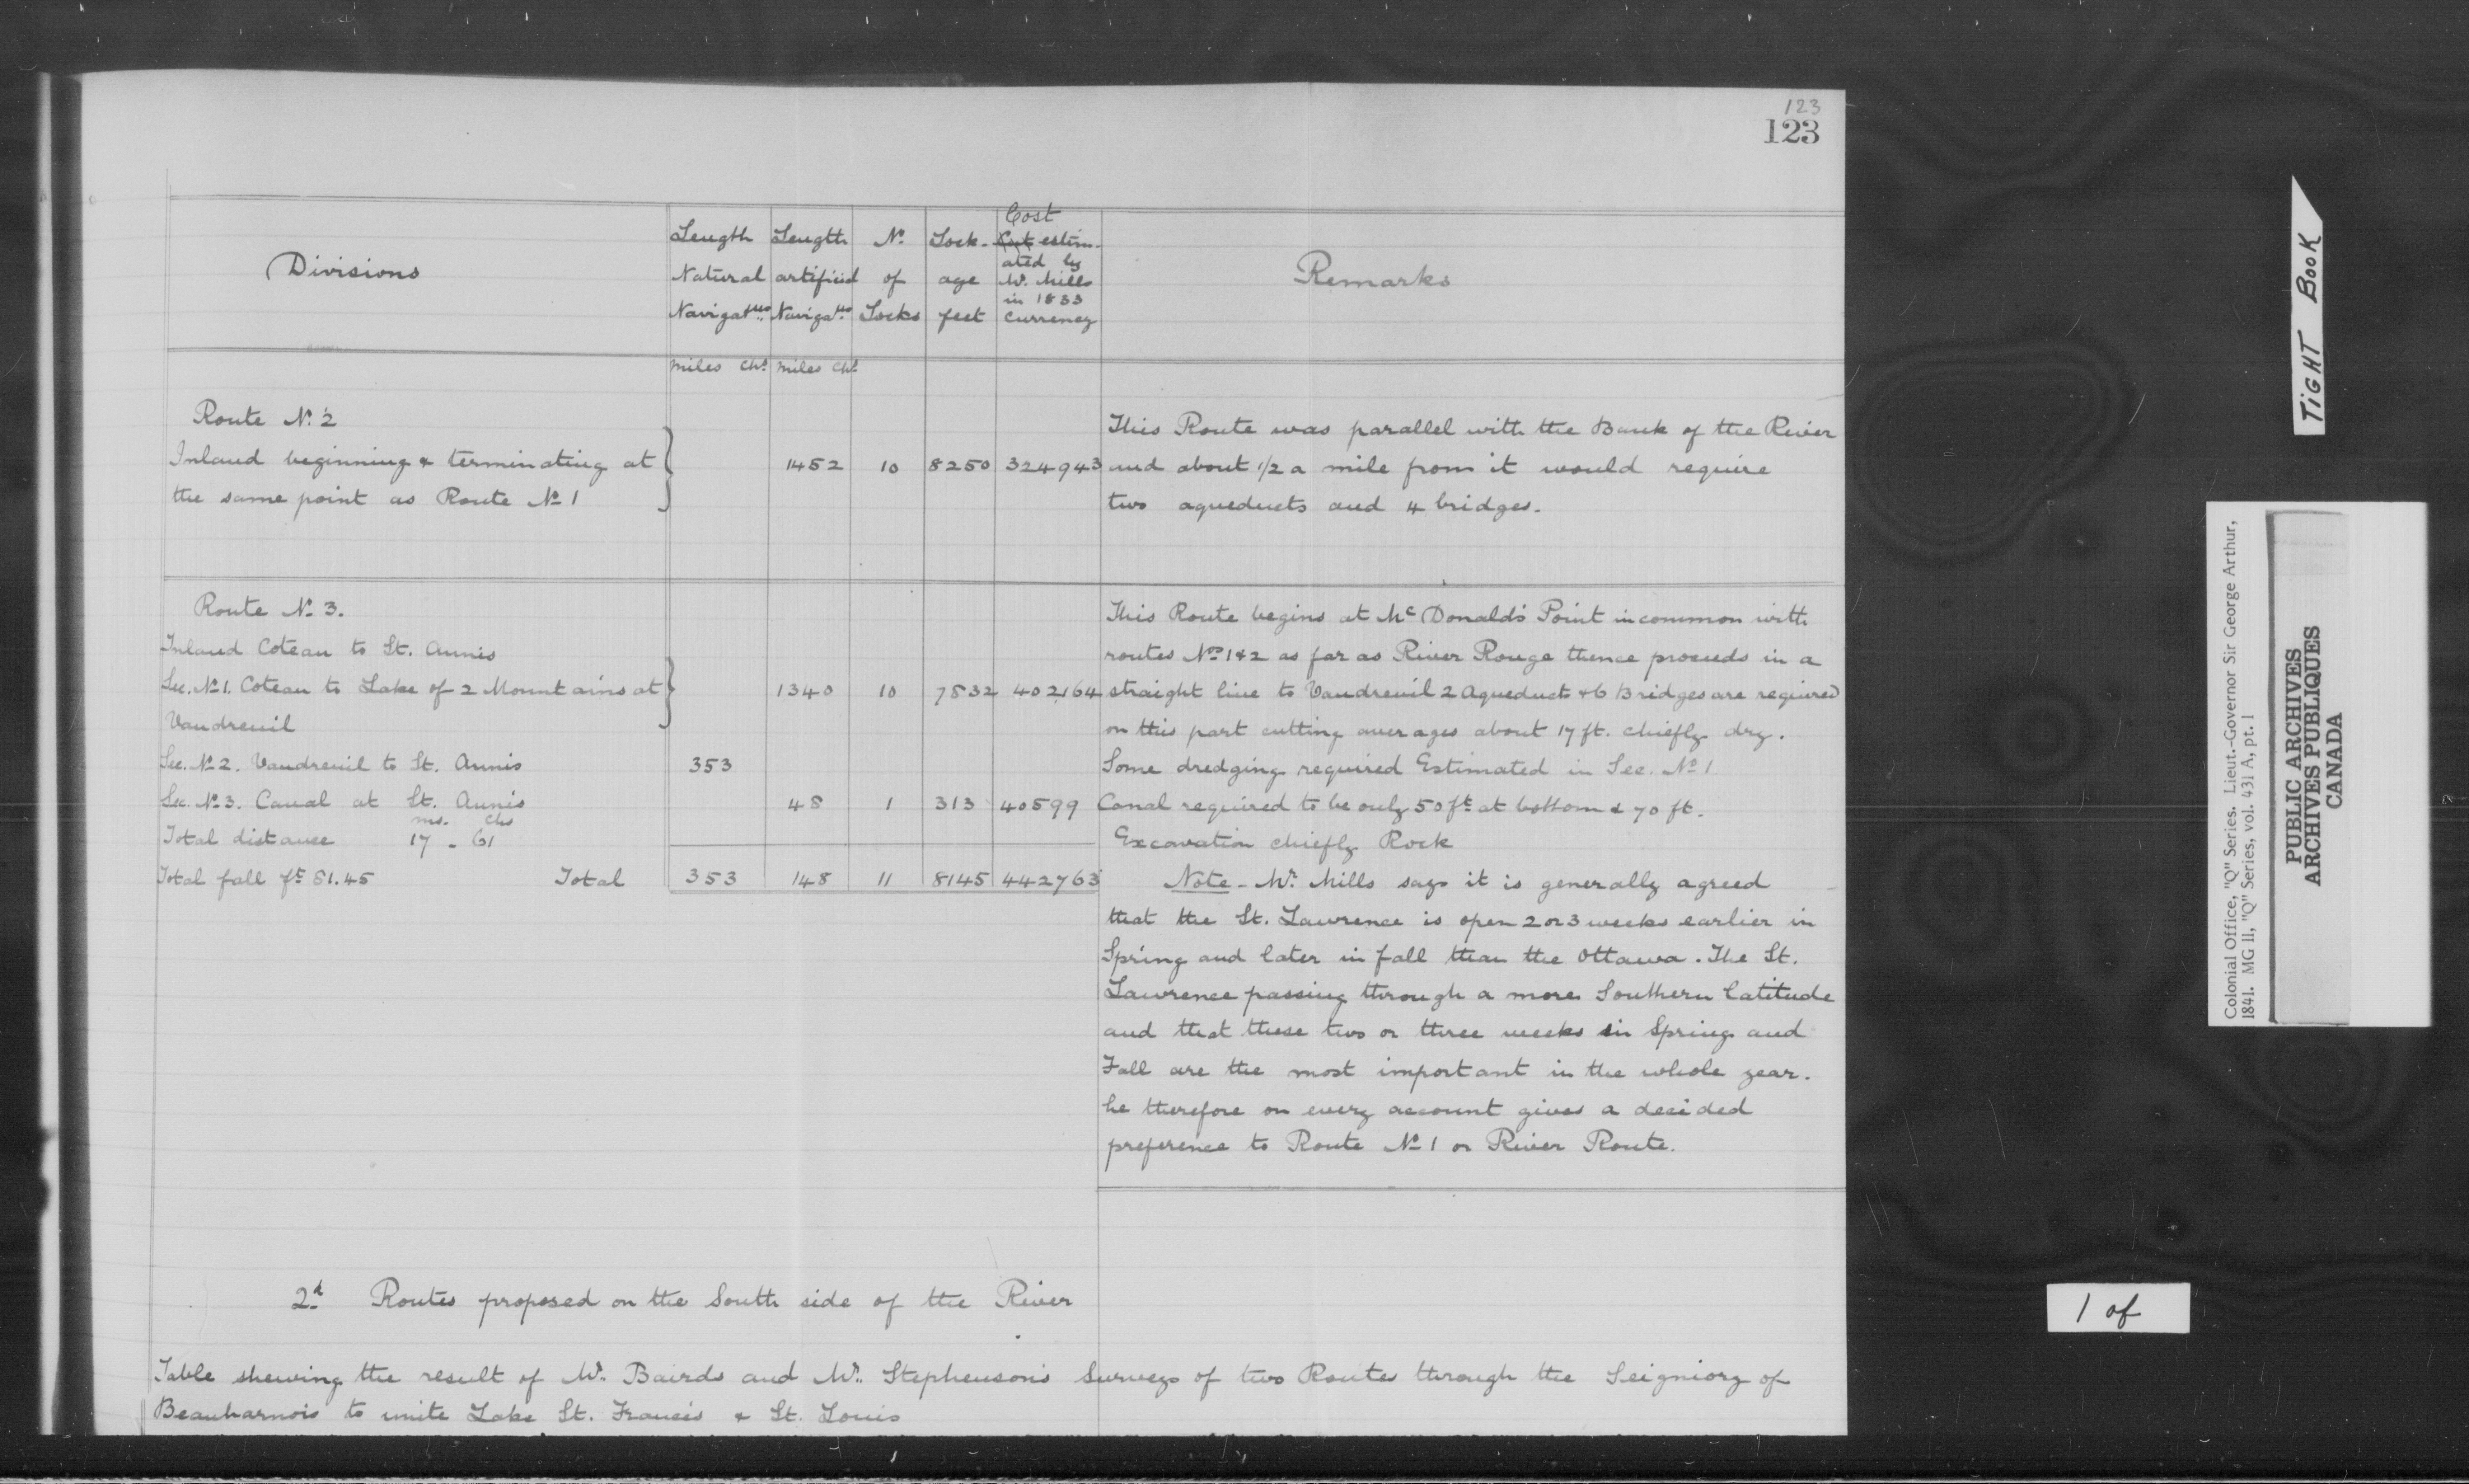 123
123
Divisions
Length Natural Navigatns
Length artificial Navigatns
No. of Locks
Lockage feet
Cost estimated by Mr. Mills in 1833 Currency
Remarks
miles chs. miles chs.
Route No. 2
Inland beginning & terminating at
the same point as Route No 1
1452 10 8250 324943
This Route was parallel with the Bank of the River
and about 1/2 a mile from it would require
two aqueducts and 4 bridges.
Route No 3.
Inland Coteau to St. Annis
Sec. No 1. Coteau to Lake of 2 Mountains at
Vaudreuil
1340 10 7832 402164
This Route begins at McDonald's Point in common with
routes Nos 1 & 2 as far as River Rouge thence proceeds in a
straight line to Vaudreuil 2 Aqueduct & 6 Bridges are required
on this part cutting averages about 17 ft. chiefly dry.
Sec. No 2. Vaudreuil to St. Annis 353
Some dredging required Estimated in Sec. No 1
Sec. No 3. Canal at St. Annis 48 1 313 40599
Canal required to be only 50 ft at bottom & 70 ft.
ms. chs
Total distance 17 - 61
Excavation chiefly Rock
Total fall ft 81.45 Total 353 148 11 8145 442763
Note - Mr. Mills says it is generally agreed
that the St. Lawrence is open 2 or 3 weeks earlier in
Spring and later in fall than the Ottawa. The St.
Lawrence passing through a more Southern latitude
and that these two or three weeks in Spring and
Fall are the most important in the whole year.
he therefore on every account gives a decided
preference to Route No 1 or River Route.
2d Routes proposed on the South side of the River
Table shewing the result of Mr. Bairds and Mr. Stephenson's Surveys of two Routes through the Seigniory of
Beauharnois to unite Lake St. Francis & St. Louis
TIGHT BOOK
Colonial Office, "Q" Series. Lieut.-Governor Sir George Arthur,
1841. MG 11, "Q" Series, vol. 431 A, pt. 1
PUBLIC ARCHIVES
ARCHIVES PUBLIQUES
CANADA
1 of